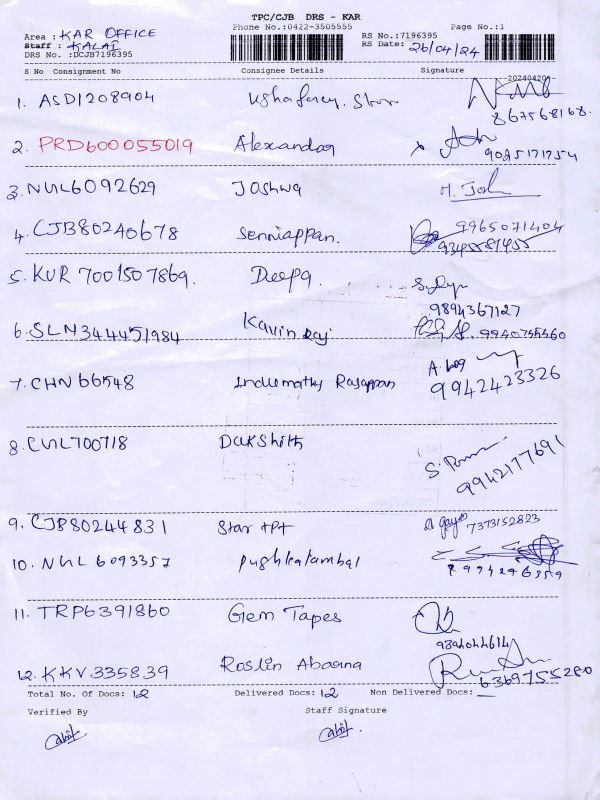 TPC/CJB DRS - KAR
Phone No.:0422-3505555 Page No.:1
Area : KAR OFFICE
Staff : KALAI
DRS No. :DCJB7196395
RS No.:7196395
RS Date: 26/04/24
S No Consignment No Consignee Details Signature
20240420
1. ASD1208904
867568168.
2. PRD600055019 Alexandar
9025171754
3. NUL6092629 Joshwa M. Josh
4. CJB80240678 Senniappan. 9965071404
9345581455
5. KUR 7001507869. Deepa
9894367127
6. SLN344451984 Kavin raj 9940755560
7. CHN 66548 Indumathy Rajappan
9942423326
8. CUL700718 Dakshith
9942177691
9. CJB80244831 Star TPT 7373152823
10. NUL 6093357 Pushkalambal
9994296959
11. TRP6391860 Gem Tapes
9394044614
12. KKV335839 Roslin Abarna
6369755280
Total No. Of Docs: 12 Delivered Docs: 12 Non Delivered Docs: —
Verified By Staff Signature